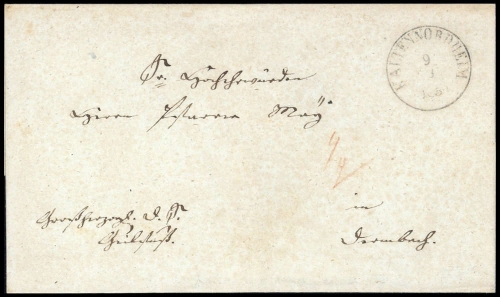 KALTENNORDHEIM
9
1
Sr. Hochehrwürden
Herrn Pfarrer May
in
Dermbach.
Großherzogl. D. S.